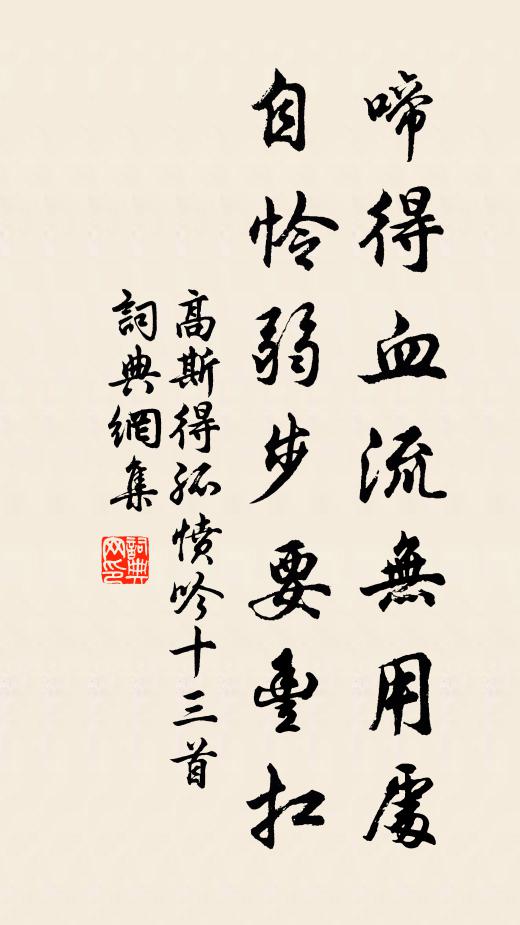 啼得血流無用處
自怜弱步要扛
高斯得孤憤吟十三首
詞典網集
詞典网印